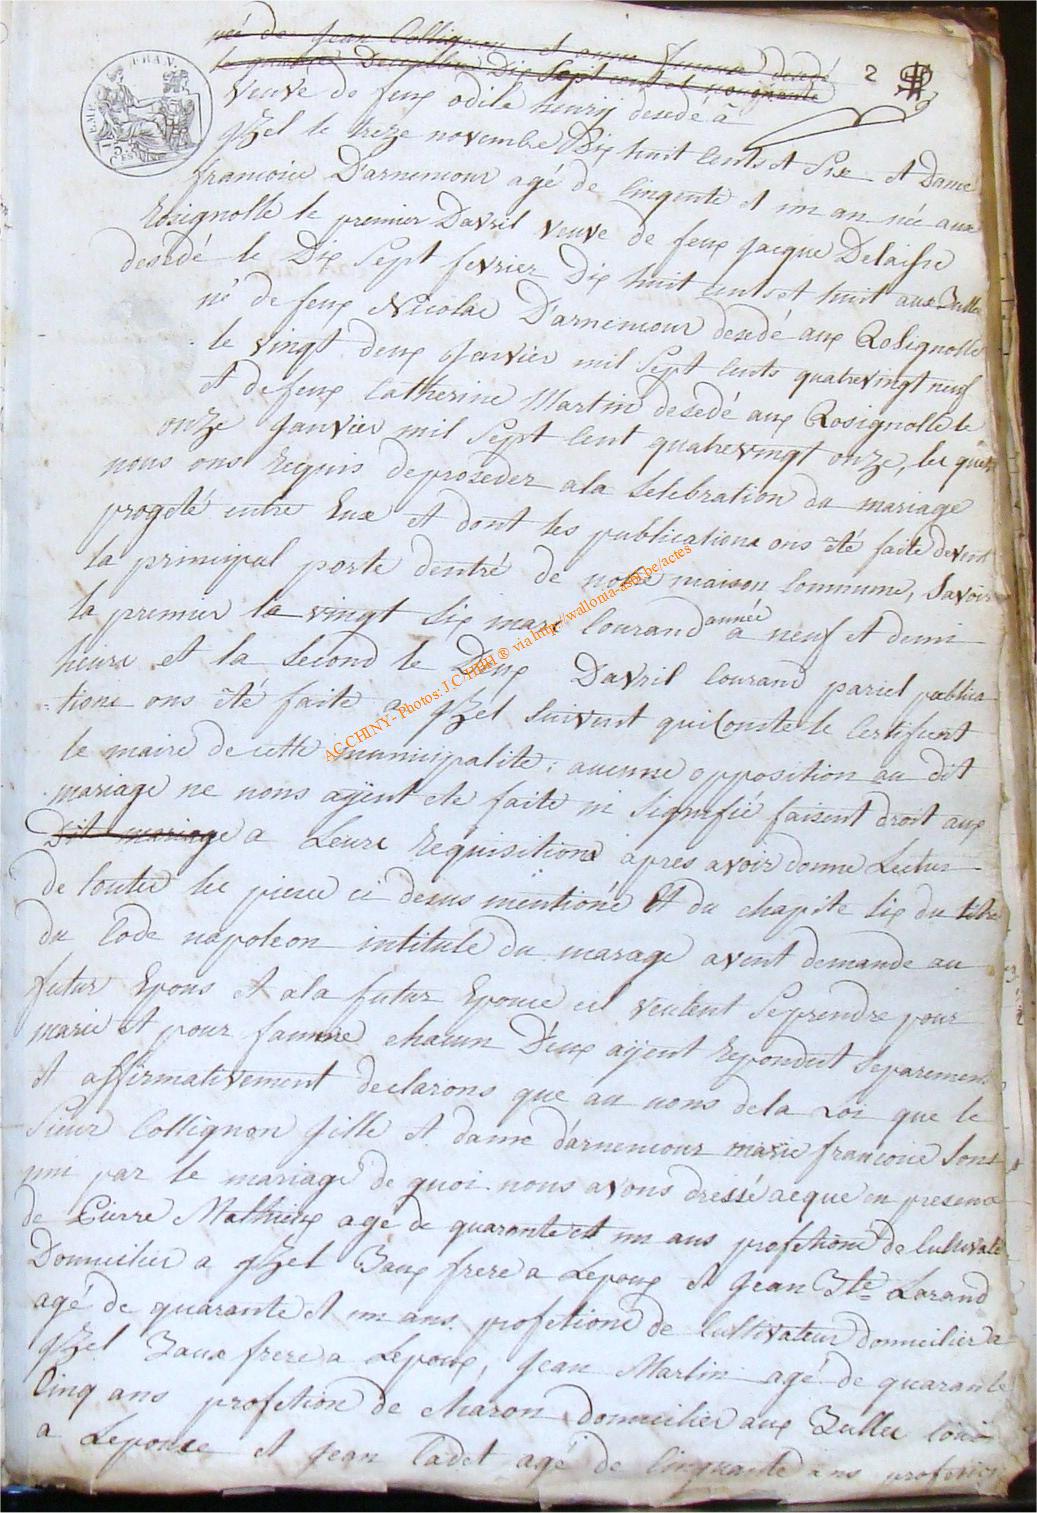 né de Jean Collignon et anne decedé
le quatre Decembre Dix Sept cent et nonante
2
EMP. FRAN.
75
CES
veuve de feux odile henrÿ desedé à
yzel le treze novembre Dix huit Cents et Six et Dame
francoise D'arnemour agé de Cinqente et un an née aux
Rosignolle le premier Davril veuve de feux jacque Delaisse
desedé le Dix Sept fevrier Dix huit Cents et huit aux Bulles
né de feux Nicolas D'arnemour desedé aux Rosignolle
le vingt deux Janvier mil Sept Cents quatrevingt neuf
et de feux Catherine Martin desedé aux Rosignolle le
onze Janvier mil Sept Cent quatrevingt onze, les quels
nous ons Requis deproseder ala Selebration du mariage
progeté entre Eux et dont les publications ons été faite devent
la principal porte dentré de notre maison Commune, Savoir
la premier la vingt Six mars Courand année à neuf et demi
heure et la Second le Deux Davril Courand pariel publica
=tions ons été faite a yzel Suivent qui Conste le Certificat
le maire de cette municipalite : aucune opposition au dit
mariage ne nous aÿent ete faite ni Signifié faisent droit aux
Dit mariage a Leurs Requisitions apres avoir donne Lectur
de toutes les piece ci desus mentioné et du chapite Six du titre
du Code napoleon intitulé du marage avent demande au
futur Epous et ala futur Epouse cil veulent Seprendre pour
marie et pour famme chacun D'eux aÿent Repondut Séparement
et affirmativement declarons que au nons dela Loi que le
Sieur Collignon Gille et dame d'arnemour marie francoise Sont
uni par le mariage de quoi nous avons dressé acque en presence
de Pierre Mathieux agé de quarante et un ans profetions de Cultivate
Domicilier a yzel Baux frere a Lepoux et Jean Bte Larand
agé de quarante et un ans profetions de Cultivateur domicilier a
yzel Baux frere a Lepoux, Jean Martin agé de quarante
Cinq ans profetion de charon domicilier aux Bulles Cousin
a Lepouse et Jean Cadet agé de Cinquante ans profetion
AC CHINY - Photos: J.C. HBH ® via http://wallonia-asbl.be/actes